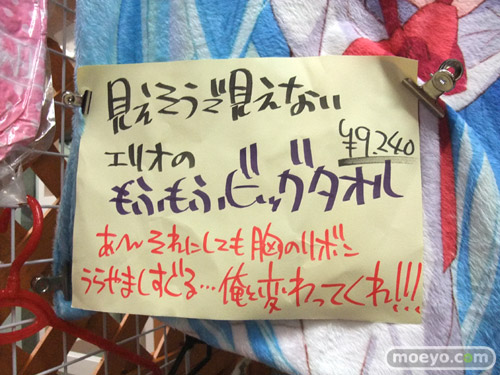 見えそうで見えない
エリオの
¥9,240
もふもふビッグタオル
あ〜んそれにしても胸のリボン
うらやましすぐる…俺と変わってくれ!!!
moeyo.com